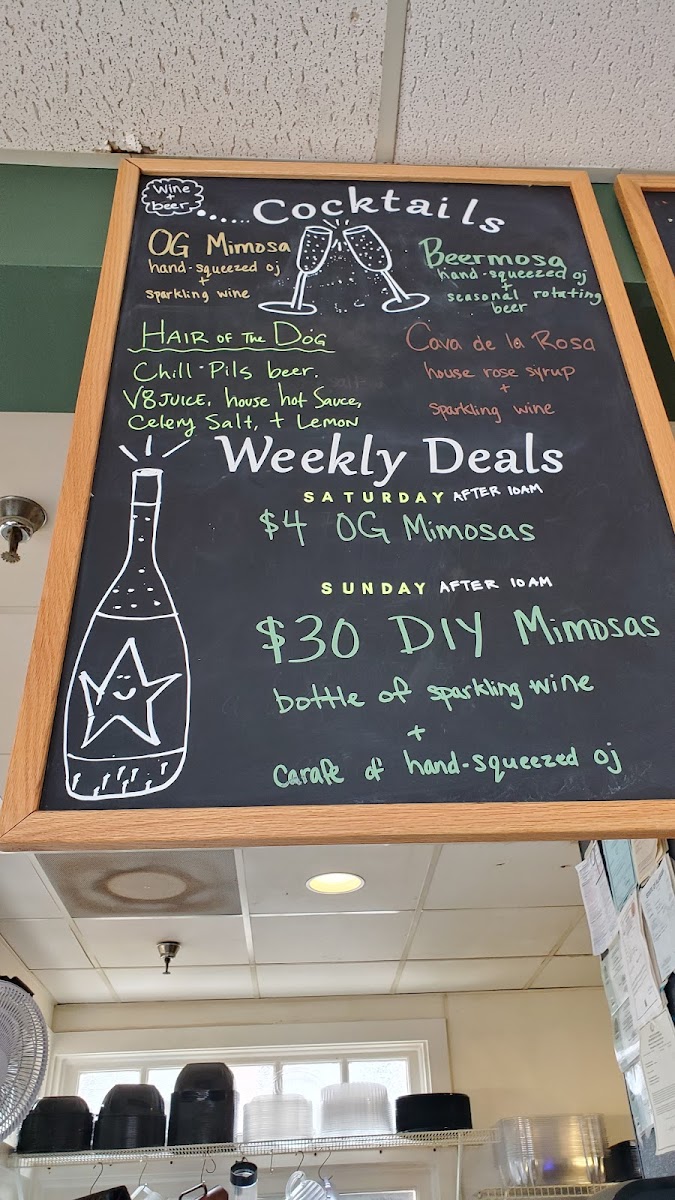 Wine
+
beer
......Cocktails
OG Mimosa
hand-squeezed oj
+
sparkling wine
Beermosa
hand-squeezed oj
+
seasonal rotating
beer
HAIR OF THE DOG
Chill-Pils beer.
V8 JUICE, house hot Sauce,
Celery Salt, + LEMON
Cava de la Rosa
house rose syrup
+
sparkling wine
Weekly Deals
SATURDAY AFTER 10AM
$4 OG Mimosas
SUNDAY AFTER 10AM
$30 DIY Mimosas
bottle of sparkling wine
+
carafe of hand-squeezed oj